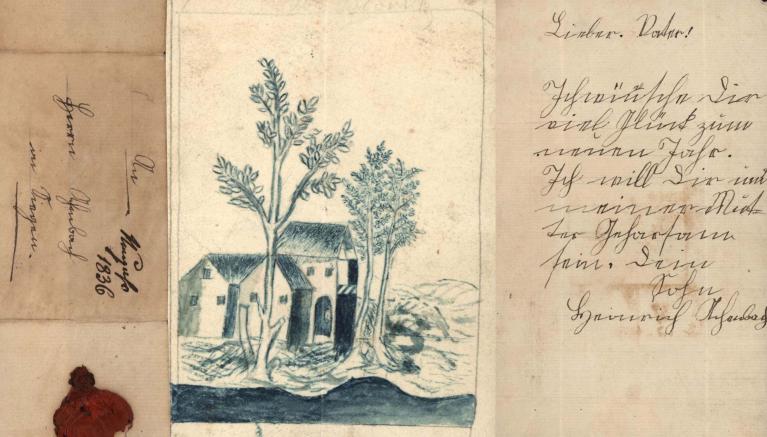 An
Herrn
in
1836
Lieber. Vater!
Ich wünsche Dir
viel Glück zum
neuen Jahr.
Ich will Dir und
meiner Mut-
ter Gehorsam
sein. Dein
Sohn
Heinrich